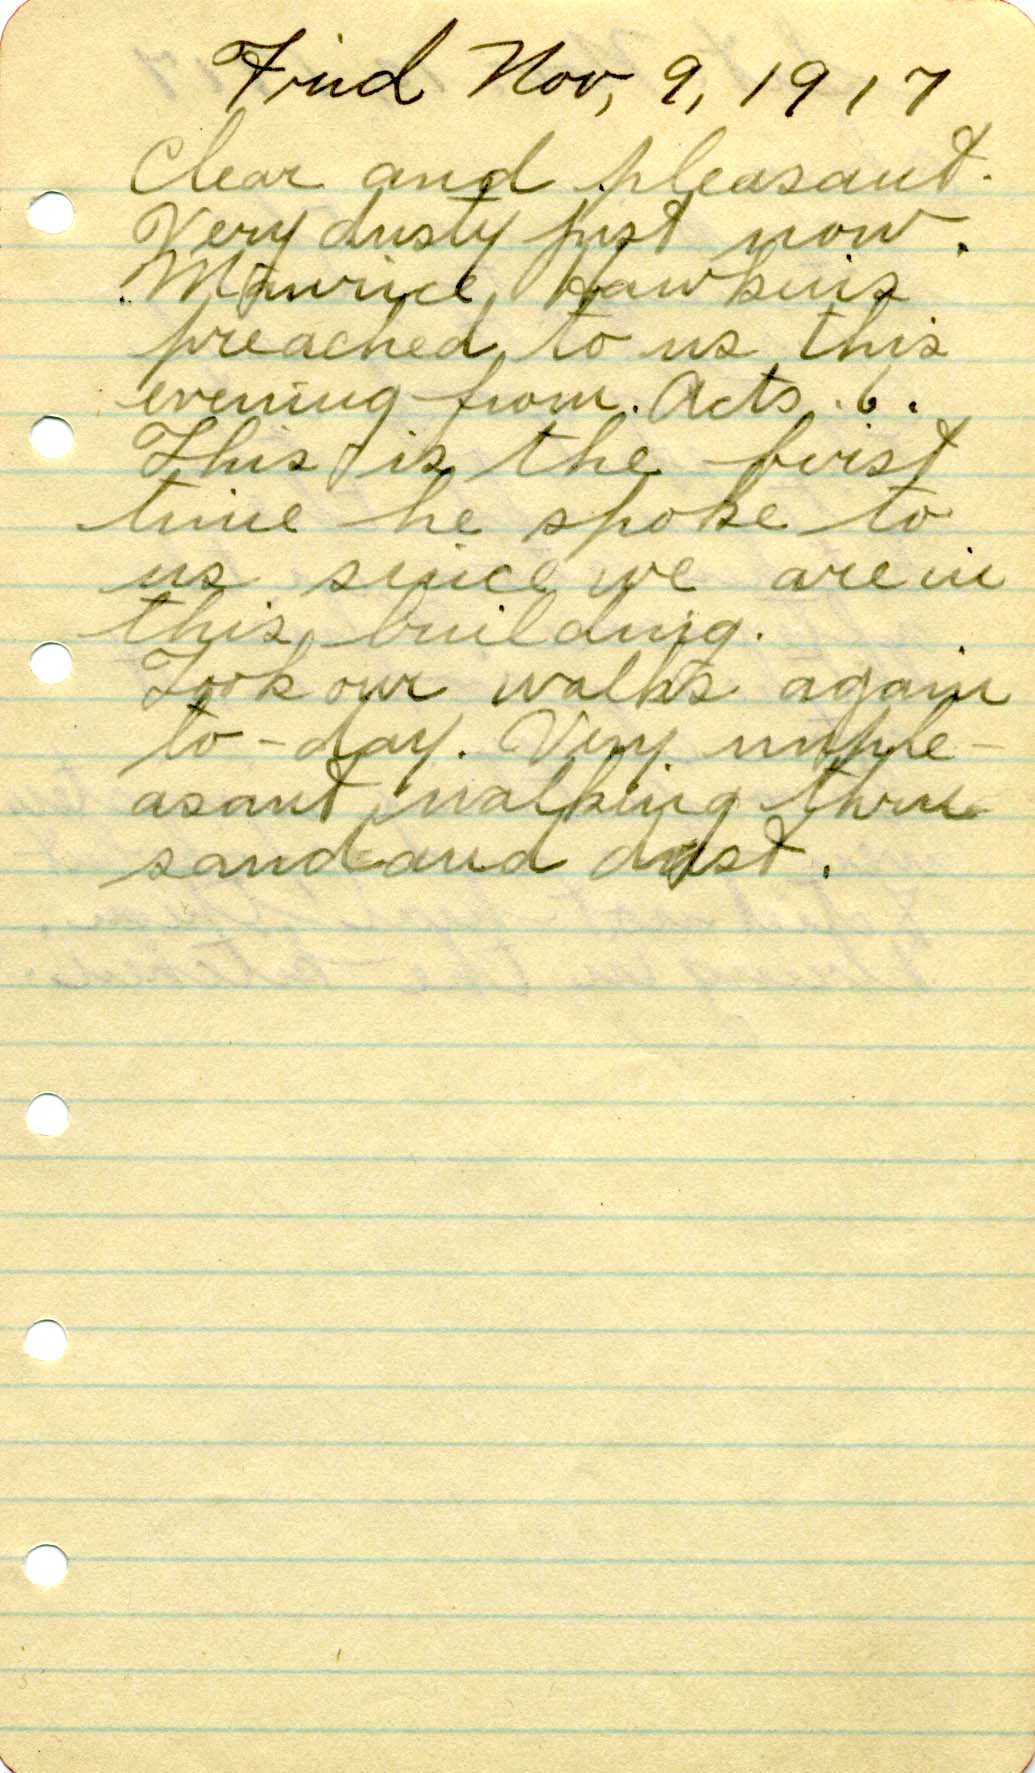 Frid Nov, 9, 1917
Clear and pleasant.
Very dusty just now.
Maurice Hawkins
preached to us this
evening from. Acts. 6.
This is the first
time he spoke to
us since we are in
this building.
Took our walks again
to-day. Very unple-
asant walking thru
sand and dust.